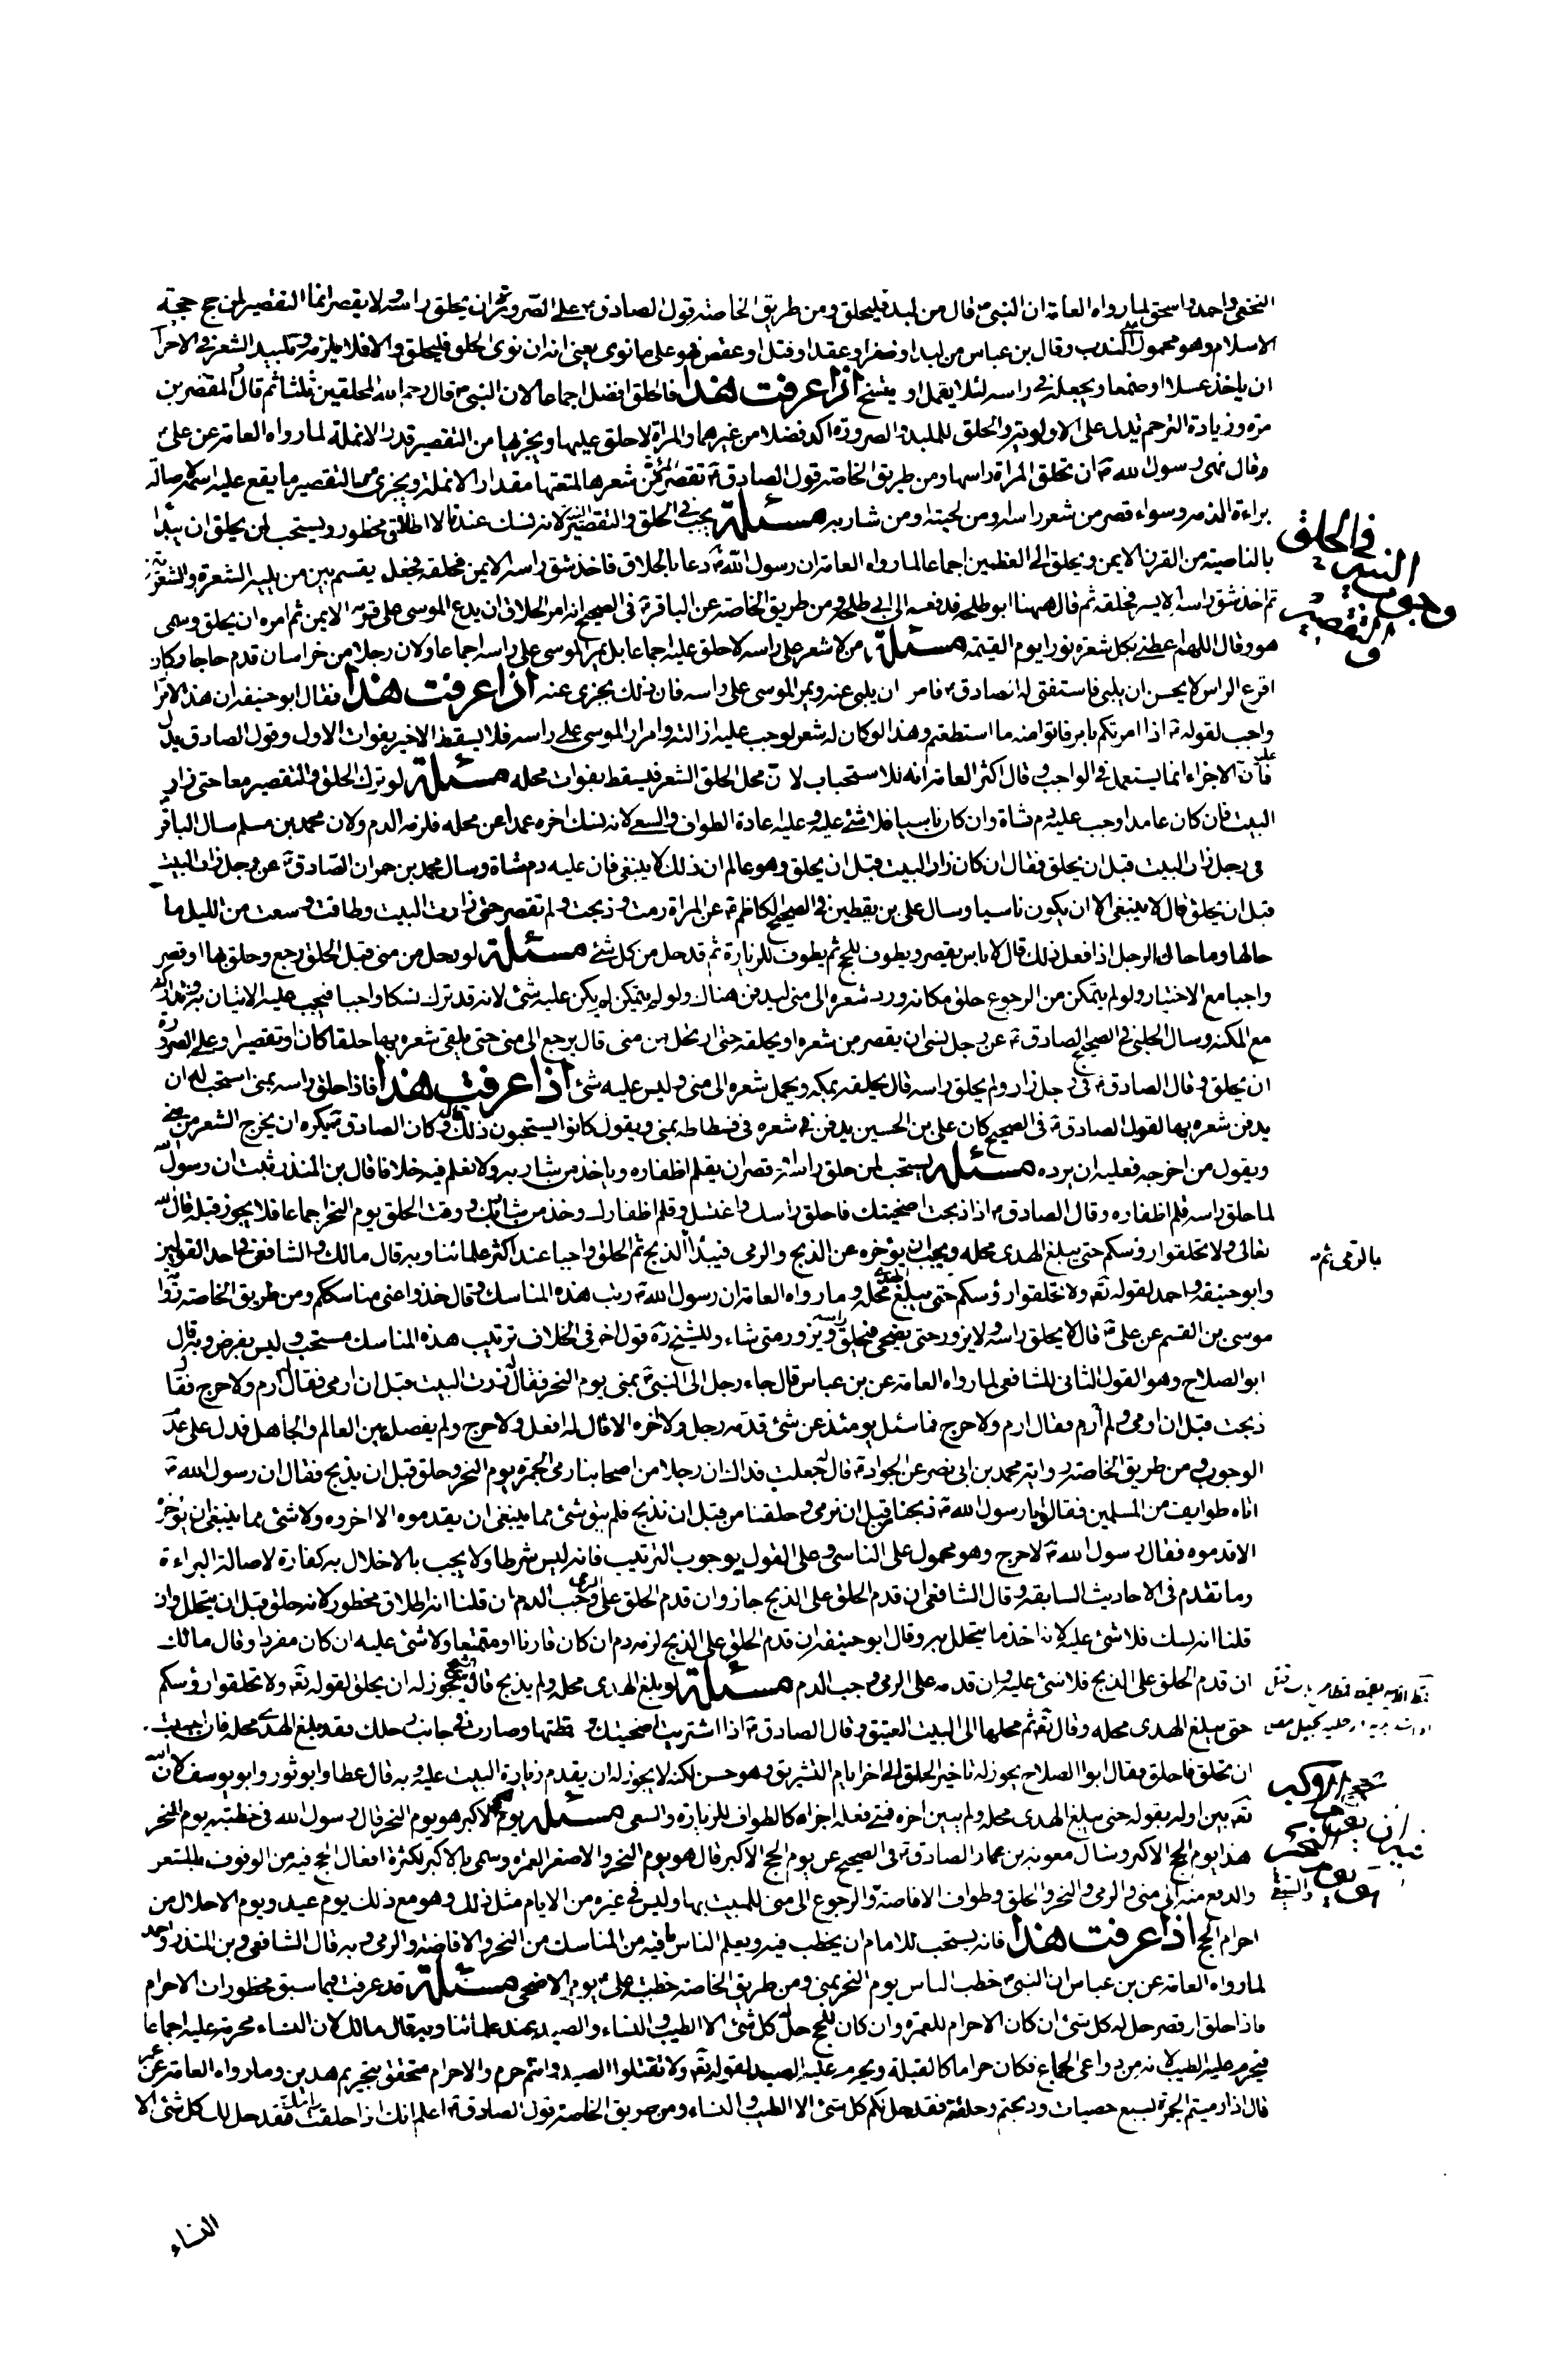 النخعى واحمد واسحق لما رواه العامة ان النبى ص قال من لبد فليحلق ومن طريق الخاصة قول الصادق ع على الصرورة ان يحلق راسه ولا يقصر انما التقصير لمن حج حجة
الاسلام وهو محمول على الندب وقال بن عباس من لبد او ضفر او عقد او فتل او عقص فهو على ما نوى يعنى انه ان نوى الحلق فليحلق والا فلا يلزمه وتلبيد الشعر فى الاحرام
ان ياخذ عسلا او صمغا ويجعله فى راسه لئلا يقمل او يتسخ اذا عرفت هذا فالحلق افضل اجماعا لان النبى ص قال رحم الله المحلقين ثلثا ثم قال والمقصرين
مرة وزيادة الترحم تدل على الاولوية والحلق للملبد والصرورة اكد فضلا من غيرهما والمراة لا حلق عليها ويجزيها من التقصير قدر الانملة لما رواه العامة عن على ع
وقال نهى رسول الله ص ان تحلق المراة راسها ومن طريق الخاصة قول الصادق ع تقصر المراة من شعرها لمتعتها مقدار الانملة ويجزى من التقصير ما يقع عليه اسمه لاصالة
براءة الذمة وسواء قصر من شعر راسه او من لحيته او من شاربه مسئلة يجب فى الحلق والتقصير النية لانه نسك عندنا لا اطلاق محظور ويستحب لمن يحلق ان يبدا
بالناصية من القرن الايمن ويحلق الى العظمين اجماعا لما رواه العامة ان رسول الله ص دعا بالحلاق فاخذ شق راسه الايمن فحلقه فجعل يقسم بين من يليه الشعرة والشعرتين
ثم اخذ شق راسه الايسر فحلقه ثم قال ههنا ابو طلحة فدفعه الى ابى طلحة ومن طريق الخاصة عن الباقر ع فى الصحيح انه امر الحلاق ان يدع الموسى على قرنه الايمن ثم امره ان يحلق وسمى
هو وقال اللهم اعطنى بكل شعرة نورا يوم القيمة مسئلة من لا شعر على راسه لا حلق عليه اجماعا بل يمر الموسى على راسه اجماعا ولان رجلا من خراسان قدم حاجا وكان
اقرع الراس لا يحسن ان يلبى فاستفتى له الصادق ع فامر ان يلبى عنه ويمر الموسى على راسه فان ذلك يجزى عنه اذا عرفت هذا فقال ابو حنيفة ان هذا الامرار
واجب لقوله ع اذا امرتكم بامر فاتوا منه ما استطعتم وهذا لو كان له شعر لوجب عليه ازالته وامرار الموسى على راسه فلا يسقط الاخير بفوات الاول وقول الصادق يدل
على فان الاجزاء انما يستعمل فى الواجب وقال اكثر العامة انه للاستحباب لان محل الحلق الشعر فيسقط بفوات محله مسئلة لو ترك الحلق والتقصير معا حتى زار
البيت فان كان عامدا وجب عليه دم شاة وان كان ناسيا فلا شئ عليه وعليه اعادة الطواف والسعى لانه نسك اخره عمدا عن محله فلزمه الدم ولان محمد بن مسلم سال الباقر ع
فى رجل زار البيت قبل ان يحلق فقال ان كان زار البيت قبل ان يحلق وهو عالم ان ذلك لا ينبغى فان عليه دم شاة وسال محمد بن حمران الصادق ع عن رجل زار البيت
قبل ان يحلق قال لا ينبغى الا ان يكون ناسيا وسال على بن يقطين فى الصحيح الكاظم ع عن المراة رمت وذبحت ولم تقصر حتى زارت البيت وطافت وسعت من الليل ما
حالها وما حال الرجل اذا فعل ذلك قال لا باس يقصر ويطوف للحج ثم يطوف للزيارة ثم قد حل من كل شئ مسئلة لو رحل من منى قبل الحلق رجع وحلق بها او قصر
واجبا مع الاختيار ولو لم يتمكن من الرجوع حلق مكانه ورد شعره الى منى ليدفن هناك ولو لم يتمكن لم يكن عليه شئ لانه قد ترك نسكا واجبا فيجب عليه الاتيان به وتداركه
مع المكنة وسال الحلبى فى الصحيح الصادق ع عن رجل نسى ان يقصر من شعره او يحلقه حتى ارتحل من منى قال يرجع الى منى حتى يلقى شعره بها حلقا كان او تقصيرا وعلى الصرورة
ان يحلق وقال الصادق ع فى رجل زار ولم يحلق راسه قال يحلقه بمكة ويحمل شعره الى منى وليس عليه شئ اذا عرفت هذا فاذا حلق راسه بمنى استحب له ان
يدفن شعره بها لقول الصادق ع فى الصحيح كان على بن الحسين يدفن شعره فى فسطاطه بمنى ويقول كانوا يستحبون ذلك قال وكان الصادق ع يكره ان يخرج الشعر من منى
ويقول من اخرجه فعليه ان يرده مسئلة يستحب لمن حلق راسه او قصر ان يقلم اظفاره وياخذ من شاربه ولا نعلم فيه خلافا قال بن المنذر ثبت ان رسول الله
لما حلق راسه قلم اظفاره وقال الصادق ع اذا ذبحت اضحيتك فاحلق راسك واغتسل وقلم اظفارك وخذ من شاربك ووقت الحلق يوم النحر اجماعا فلا يجوز قبله قال الله
تعالى ولا تحلقوا رؤسكم حتى يبلغ الهدى محله ويجب ان يؤخره عن الذبح والرمى فيبدأ بالذبح ثم الحلق واجبا عند اكثر علمائنا وبه قال مالك والشافعى فى احد القولين
بالرمى ثم
وابو حنيفة واحمد لقوله تع ولا تحلقوا رؤسكم حتى يبلغ الهدى محله وما رواه العامة ان رسول الله ص رتب هذه المناسك وقال خذوا عنى مناسككم ومن طريق الخاصة رواية
موسى بن القسم عن على ع قال لا يحلق راسه ولا يزور حتى يضحى فيحلق راسه ويزور متى شاء وللشيخ ره قول اخر فى الخلاف ترتيب هذه المناسك مستحب وليس بفرض وبه قال
ابو الصلاح وهو القول الثانى للشافعى لما رواه العامة عن بن عباس قال جاء رجل الى النبى ص بمنى يوم النحر فقال زرت البيت قبل ان ارمى فقال ارم ولا حرج فقال
ذبحت قبل ان ارمى ولم ارم فقال ارم ولا حرج فما سئل يومئذ عن شئ قدمه رجل ولا اخره الا قال له افعل ولا حرج ولم يفصل بين العالم والجاهل فدل على عدم
الوجوب ومن طريق الخاصة رواية محمد بن ابى نصر عن الجواد ع قال له جعلت فداك ان رجلا من اصحابنا رمى الجمرة يوم النحر وحلق قبل ان يذبح فقال ان رسول الله ص
اتاه طوايف من المسلمين فقالوا يا رسول الله ص ذبحنا من قبل ان نرمى وحلقنا من قبل ان نذبح فلم يبق شئ مما ينبغى ان يقدموه الا اخروه ولا شئ مما ينبغى ان يؤخروه
الا قدموه فقال رسول الله ص لا حرج وهو محمول على الناسى وعلى القول بوجوب الترتيب فانه ليس شرطا ولا يجب بالاخلال به كفارة لاصالة البراءة
وما تقدم فى الاحاديث السابقة وقال الشافعى ان قدم الحلق على الذبح جاز وان قدم الحلق على الرمى وجب الدم ان قلنا انه اطلاق محظور لانه حلق قبل ان يتحلل وان
قلنا انه نسك فلا شئ عليه لانه اخذ ما يتحلل به وقال ابو حنيفة ان قدم الحلق على الذبح لزمه دم ان كان قارنا او متمتعا ولا شئ عليه ان كان مفردا وقال مالك
ان قدم الحلق على الذبح فلا شئ عليه وان قدمه على الرمى وجب الدم مسئلة لو بلغ الهدى محله ولم يذبح قال الشيخ يجوز له ان يحلق لقوله تع ولا تحلقوا رؤسكم
حتى يبلغ الهدى محله وقال تع ثم محلها الى البيت العتيق وقال الصادق ع اذا اشتريت اضحيتك وقمطتها وصارت فى جانب رحلك فقد بلغ الهدى محله فان احببت
ان تحلق فاحلق وقال ابو الصلاح يجوز له تاخير الحلق الى اخر ايام التشريق وهو حسن لكنه لا يجوز له ان يقدم زيارة البيت عليه وبه قال عطا وابو ثور وابو يوسف لان الله
تع بين اوله بقوله حتى يبلغ الهدى محله ولم يبين اخره فمتى فعله اجزاه كالطواف للزيارة والسعى مسئلة يوم الحج الاكبر هو يوم النحر قال رسول الله فى خطبته يوم النحر
هذا يوم الحج الاكبر وسال معوية بن عمار الصادق ع فى الصحيح عن يوم الحج الاكبر قال هو يوم النحر والاصغر العمرة وسمى بالاكبر لكثرة افعال الحج فيه من الوقوف بالمشعر
والدفع منه الى منى والرمى والنحر والحلق وطواف الافاضة والرجوع الى منى للمبيت بها وليس فى غيره من الايام مثل ذلك وهو مع ذلك يوم عيد ويوم الاحلال من
احرام الحج اذا عرفت هذا فانه يستحب للامام ان يخطب فيه ويعلم الناس ما فيه من المناسك من النحر والافاضة والرمى وبه قال الشافعى وبن المنذر واحمد
لما رواه العامة عن بن عباس ان النبى ص خطب الناس يوم النحر بمنى ومن طريق الخاصة خطبة على ع يوم الاضحى مسئلة قد عرفت فيما سبق محظورات الاحرام
فاذا حلق او قصر حل له كل شئ ان كان الاحرام للعمرة وان كان للحج حل له كل شئ الا الطيب والنساء والصيد عند علمائنا وبه قال مالك لان النساء محرمة عليه اجماعا
فيحرم عليه الطيب لانه من دواعى الجماع فكان حراما كالقبلة ويحرم عليه الصيد لقوله تع ولا تقتلوا الصيد وانتم حرم والاحرام متحقق بتحريم هذين وما رواه العامة عن عمر
قال اذا رميتم الجمرة بسبع حصيات وذبحتم وحلقتم فقد حل لكم كل شئ الا الطيب والنساء ومن طريق الخاصة قول الصادق ع اعلم انك اذا حلقت راسك فقد حل لك كل شئ الا
النساء
وجوب النية فى الحلق والتقصير